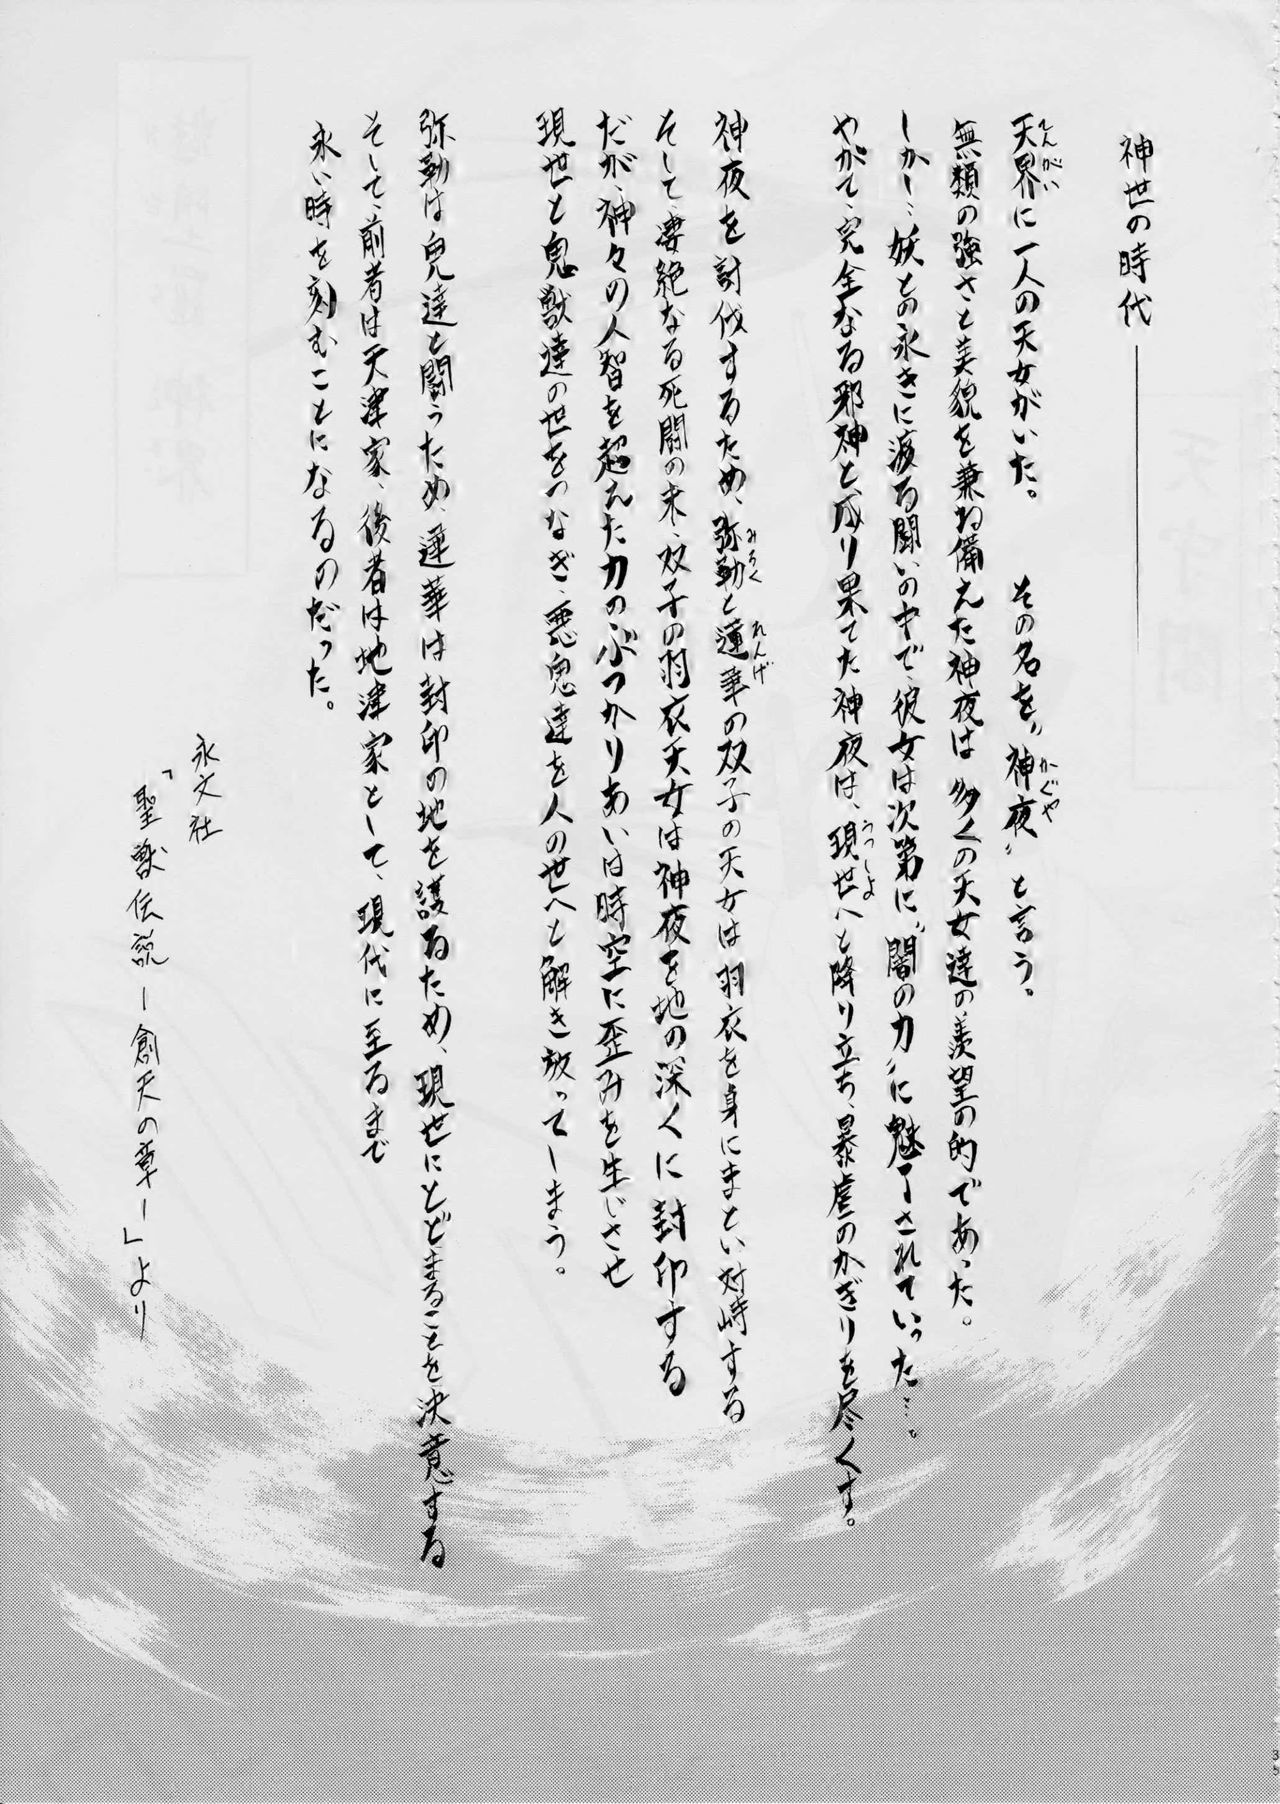 神世の時代――――――
天界に一人の天女がいた。　その名を〝神夜〟と言う。
てんがい
かぐや
無類の強さと美貌を兼ね備えた神夜は多くの天女達の羨望の的であった。
しかし…妖との永きに渡る闘いの中で、彼女は次第に〝闇の力〟に魅了されていった…。
やがて、完全なる邪神と成り果てた神夜は、現世へと降り立ち、暴虐のかぎりを尽くす。
うつしよ
神夜を討伐するため、弥勒と蓮華の双子の天女は羽衣を身にまとい対峙する
みろく
れんげ
そして、凄絶なる死闘の末、双子の羽衣天女は神夜を地の深くに封印する
だが、神々の人智を超えた力のぶつかりあいは時空に歪みを生じさせ
現世と鬼獣達の世をつなぎ、悪鬼達を人の世へと解き放ってしまう。
弥勒は鬼達と闘うため、蓮華は封印の地を護るため、現世にとどまることを決意する
そして、前者は天津家、後者は地津家として、現代に至るまで
永い時を刻むことになるのだった。
永文社
「聖獣伝説ー創天の章ー」より
35